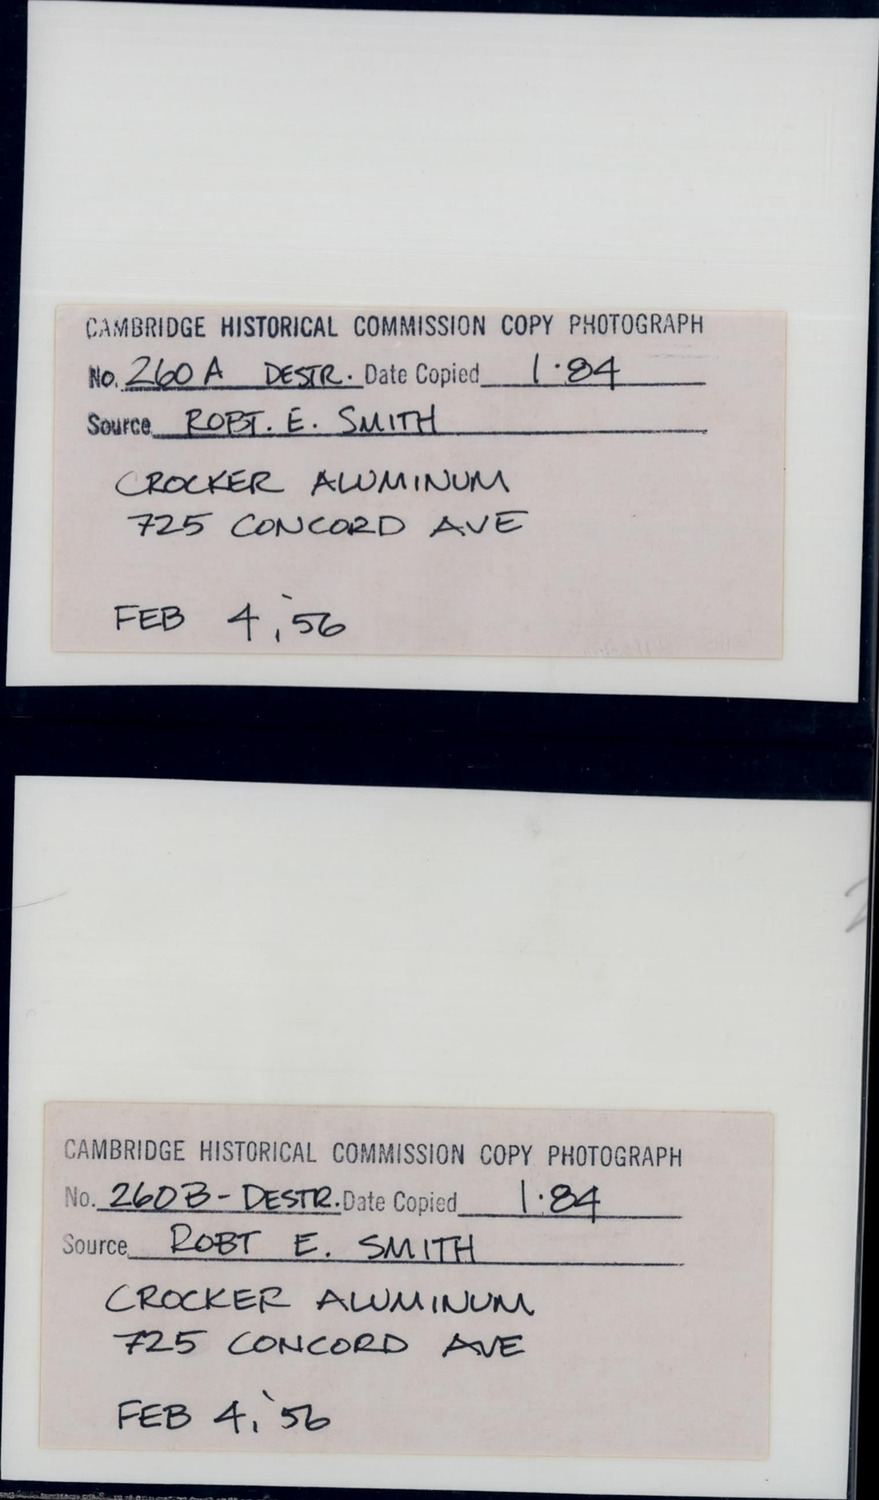 CAMBRIDGE HISTORICAL COMMISSION COPY PHOTOGRAPH
No. 260 A DESTR. Date Copied 1·84
Source ROBT. E. SMITH
CROCKER ALUMINUM
725 CONCORD AVE
FEB 4, '56
CAMBRIDGE HISTORICAL COMMISSION COPY PHOTOGRAPH
No. 260 B - DESTR. Date Copied 1·84
Source ROBT E. SMITH
CROCKER ALUMINUM
725 CONCORD AVE
FEB 4, '56